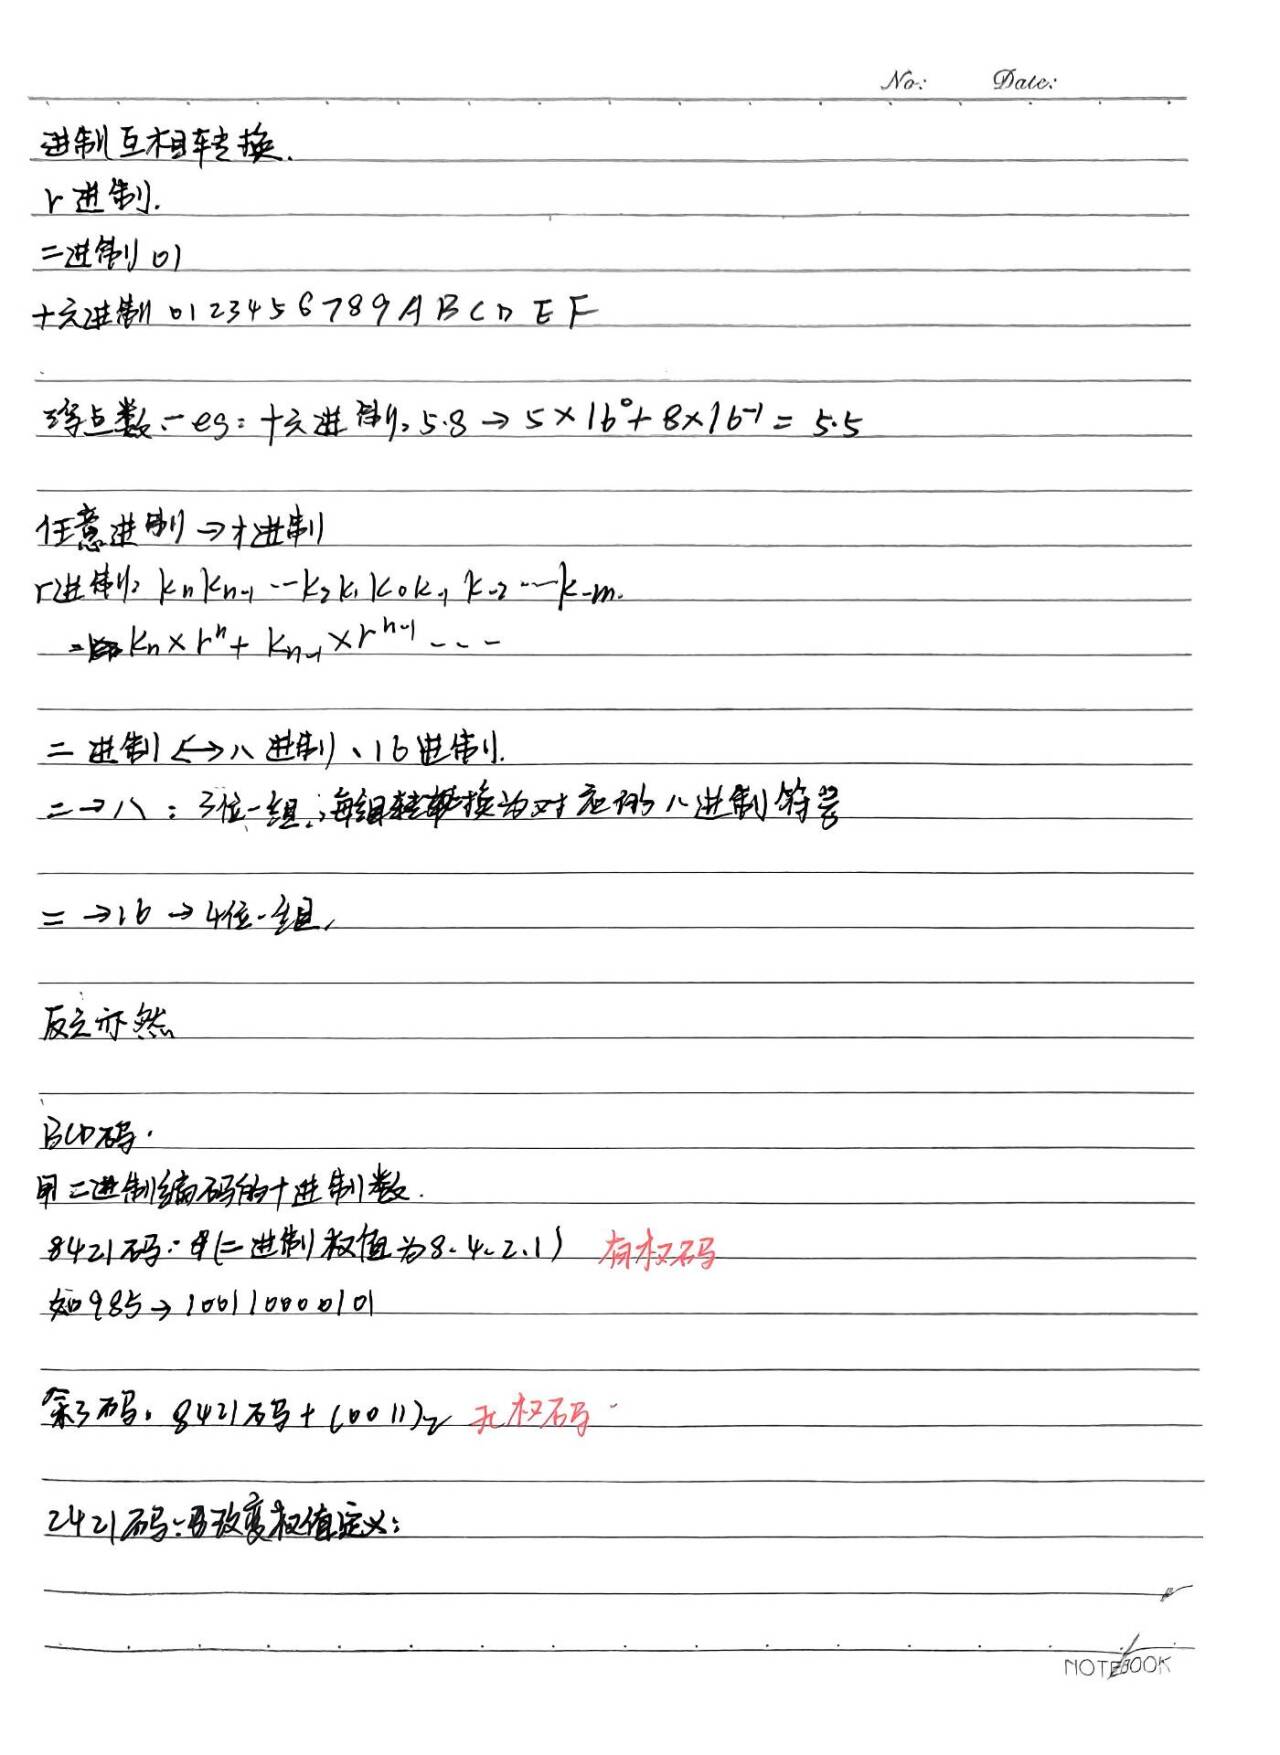 No: Date:
进制互相转换.
r进制.
二进制 01
十六进制 0123456789ABCDEF
浮点数:eg:十六进制:5.8→5×16⁰+8×16⁻¹=5.5
任意进制→十进制
r进制:KnKn-1…K2K1K0K-1K-2…K-m.
=Kn×rⁿ+Kn-1×rⁿ⁻¹...
二进制↔八进制、16进制.
二→八:3位一组,每组转换为对应的八进制符号
二→16→4位一组,
反之亦然
BCD码.
用二进制编码的十进制数.
8421码:(二进制权值为8.4.2.1) 有权码
如985→100110000101
余3码:8421码+(0011)₂ 无权码
2421码:改变权值定义:
NOTEBOOK